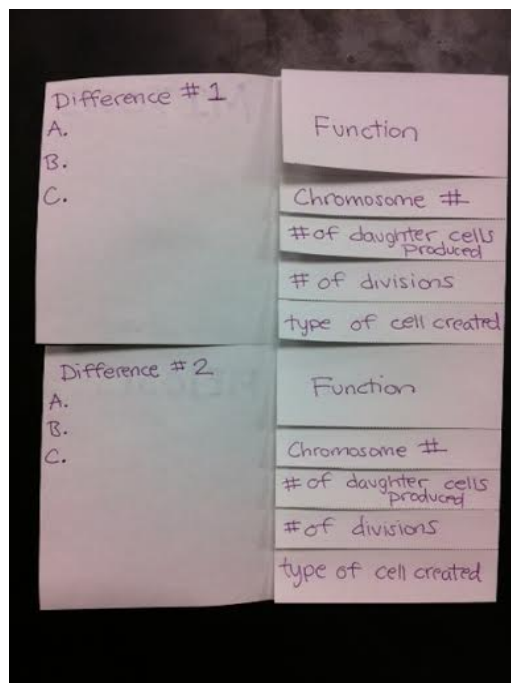 Difference #1
A.
B.
C.
Function
Chromosome #
# of daughter cells
produced
# of divisions
type of cell created
Difference #2
A.
B.
C.
Function
Chromosome #
# of daughter cells
produced
# of divisions
type of cell created